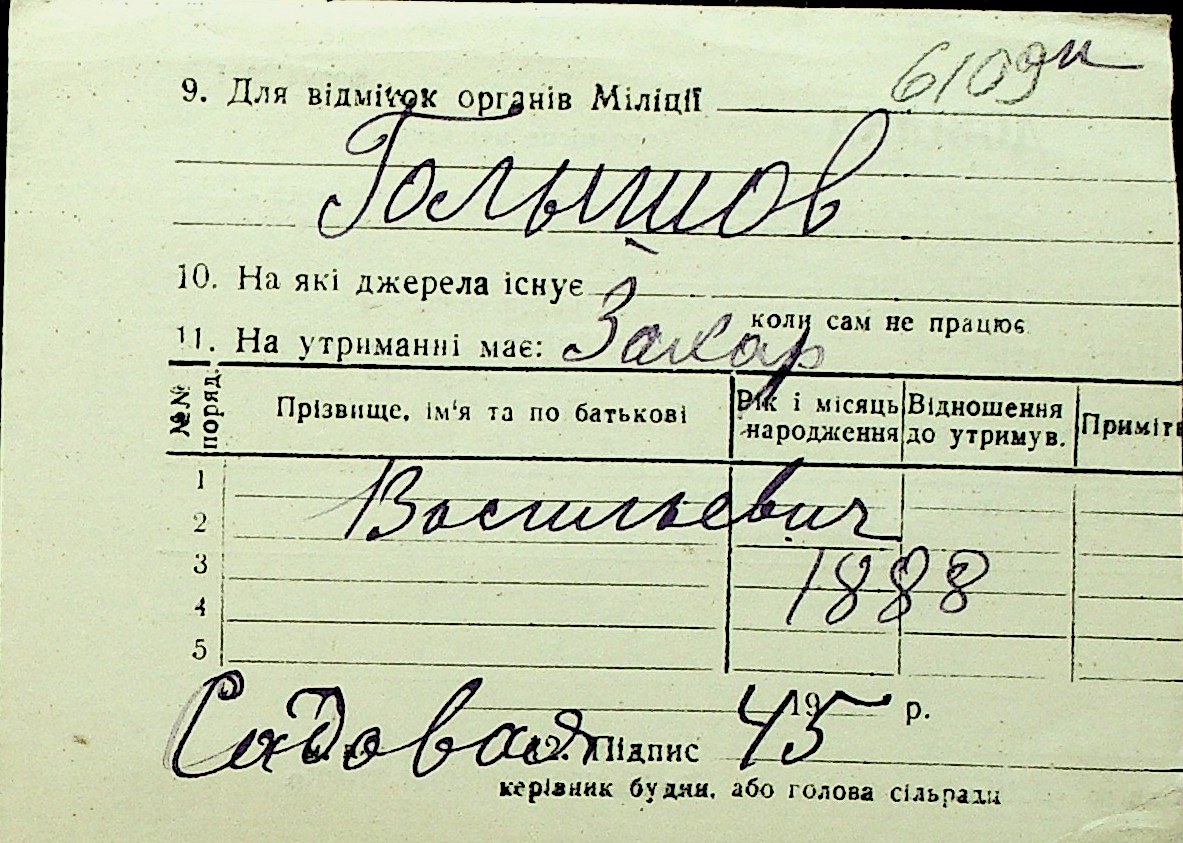 6109 п
9. Для відміток органів Міліції
Голышов
10. На які джерела існує
коли сам не працює
11. На утриманні має: Захар
№№ поряд. Прізвище, ім'я та по батькові Рік і місяць народження Відношення до утримув. Приміт
1
Васильевич
2
3
1888
4
5
19 р.
Садовая 45
12. Підпис
керівник будин. або голова сільради